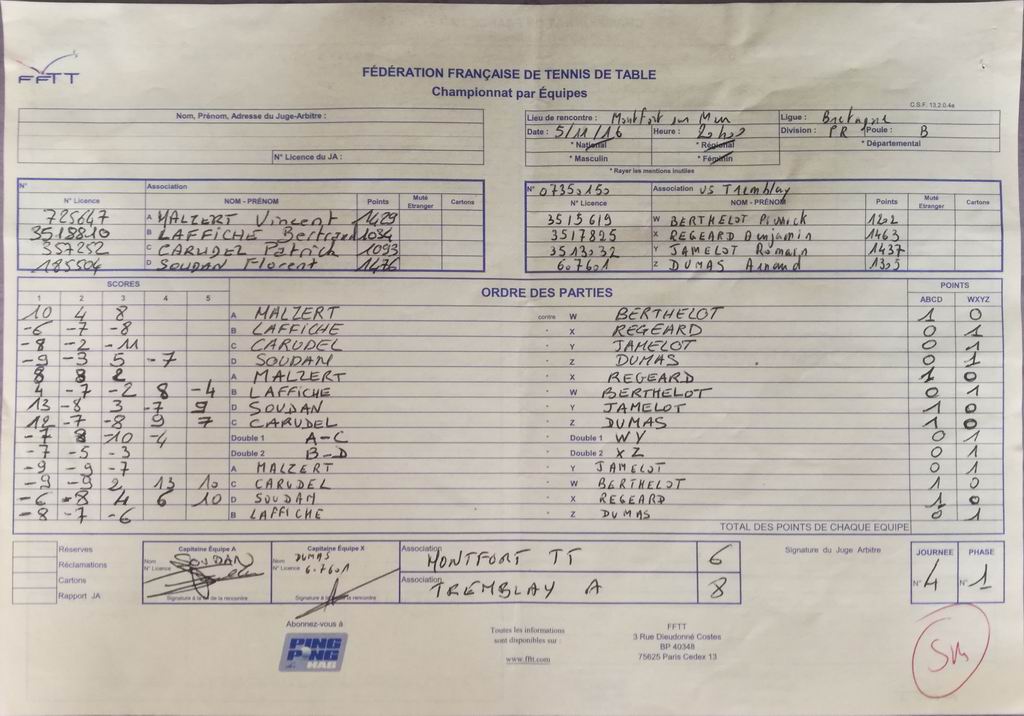 FFTT
FÉDÉRATION FRANÇAISE DE TENNIS DE TABLE
Championnat par Équipes
C.S.F. 13.2.0.4a
Nom, Prénom, Adresse du Juge-Arbitre :
N° Licence du JA :
Lieu de rencontre : Montfort sur Meu Ligue : Bretagne
Date : 5/11/16 Heure : 20h00 Division : PR Poule : B
* National * Régional * Départemental
* Masculin * Féminin
* Rayer les mentions inutiles
N° Association
N° Licence NOM - PRÉNOM Points Muté Etranger Cartons
725647 A MALZERT Vincent 1429
3518810 B LAFFICHE Bertrand 1034
357252 C CARUDEL Patrick 1093
185504 D SOUDAN Florent 1476
N° 07350150 Association US Tremblay
N° Licence NOM - PRÉNOM Points Muté Etranger Cartons
3515619 W BERTHELOT Pierrick 1202
3517825 X REGEARD Benjamin 1463
3513032 Y JAMELOT Romain 1437
607601 Z DUMAS Arnaud 1305
SCORES ORDRE DES PARTIES POINTS
1 2 3 4 5 ABCD WXYZ
10 4 8 A MALZERT contre W BERTHELOT 1 0
-6 -7 -8 B LAFFICHE " X REGEARD 0 1
-8 -2 -11 C CARUDEL " Y JAMELOT 0 1
-9 -3 5 -7 D SOUDAN " Z DUMAS 0 1
8 8 2 A MALZERT " X REGEARD 1 0
4 -7 -2 8 -4 B LAFFICHE " W BERTHELOT 0 1
13 -8 3 -7 9 D SOUDAN " Y JAMELOT 1 0
12 -7 -8 9 7 C CARUDEL " Z DUMAS 1 0
-7 8 -10 -4 Double 1 A-C " Double 1 WY 0 1
-7 -5 -3 Double 2 B-D " Double 2 XZ 0 1
-9 -9 -7 A MALZERT " Y JAMELOT 0 1
-9 -9 2 13 10 C CARUDEL " W BERTHELOT 1 0
-6 -8 4 6 10 D SOUDAN " X REGEARD 1 0
-8 -7 -6 B LAFFICHE " Z DUMAS 0 1
TOTAL DES POINTS DE CHAQUE EQUIPE
Réserves
Réclamations
Cartons
Rapport JA
Capitaine Équipe A
Nom SOUDAN
N° Licence
Signature à la fin de la rencontre
Capitaine Équipe X
Nom DUMAS
N° Licence 607601
Signature à la fin de la rencontre
Association MONTFORT TT 6
Association TREMBLAY A 8
Signature du Juge Arbitre
JOURNEE PHASE
N° 4 N° 1
Abonnez-vous à
PING PONG MAG
Toutes les informations
sont disponibles sur :
www.fftt.com
FFTT
3 Rue Dieudonné Costes
BP 40348
75625 Paris Cedex 13